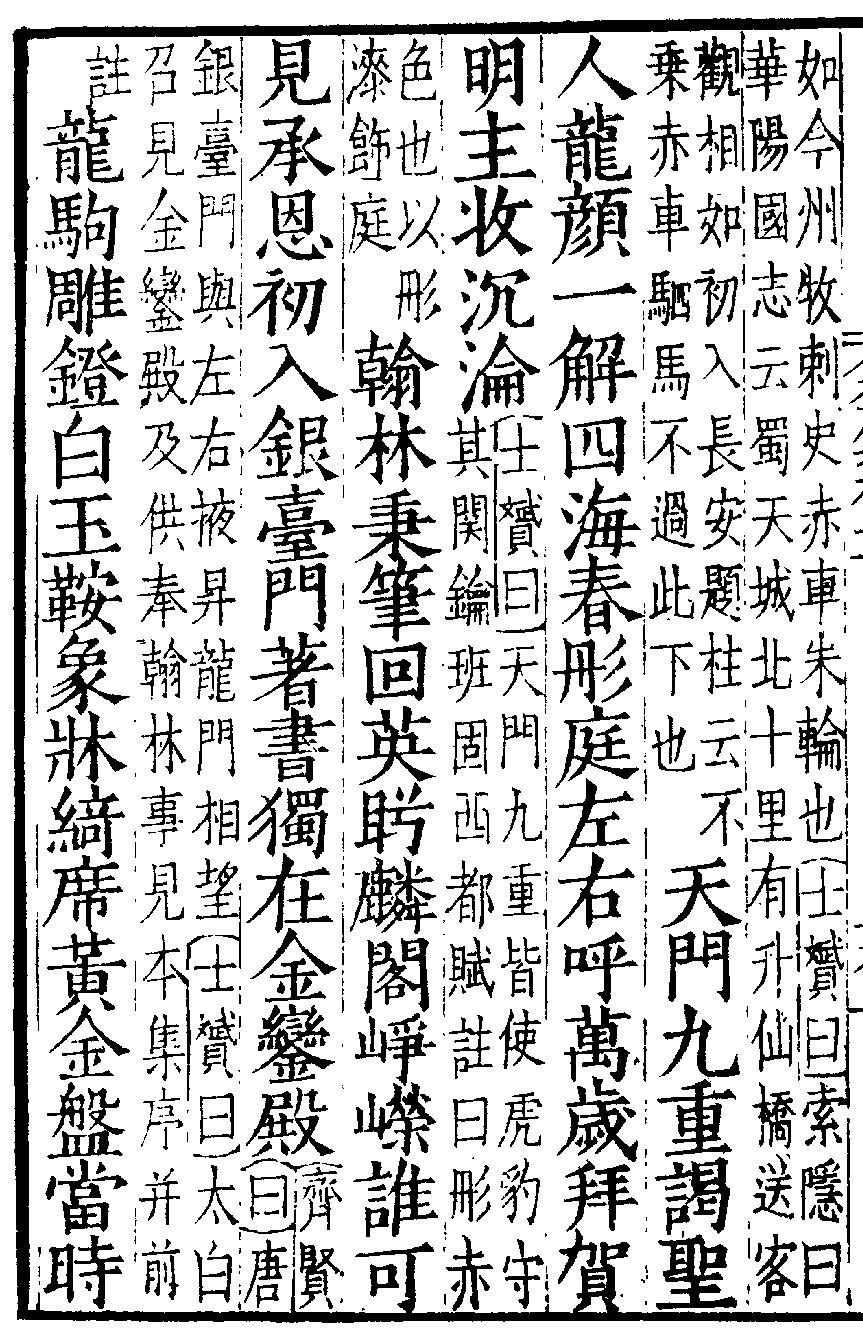 如今州牧刺史赤車朱輪也士贇曰索隱曰
華陽國志云蜀天城北十里有升仙橋送客
觀相如初入長安題柱云不
乗赤車駟馬不過此下也
天門九重謁聖
人龍顏一解四海春彤庭左右呼萬歲拜賀
明主收沉淪
士贇曰天門九重皆使虎豹守
其関鑰班固西都賦註曰彤赤
色也以彤
漆飾庭
翰林秉筆回英眄麟閣崢嶸誰可
見承恩初入銀臺門著書獨在金鑾殿
齊賢
曰唐
銀臺門與左右掖昇龍門相望士贇曰太白
召見金鑾殿及供奉翰林事見本集序并前
註
龍駒雕鐙白玉鞍象牀綺席黃金盤當時